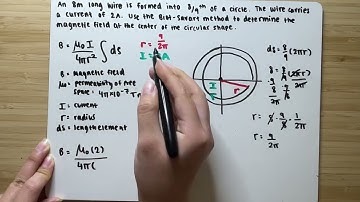 An 8m long wire is formed into 8/9th of a circle. The wire carries
a current of 2A. Use the Biot-Savart method to determine the
magnetic field at the center of the circular shape.
B = μ₀ I / 4πr² ∫ ds
B = magnetic field
μ₀ = permeability of free
space = 4π×10⁻⁷ T
I = current
r = radius
ds = length element
B = μ₀(2) / 4π(
r = 9/2π
I = A
I
r
ds = 8/9 (2πr)
8 = 8/9 (2πr)
r = 8 · 9/8 · 1/2π
r = 9/2π